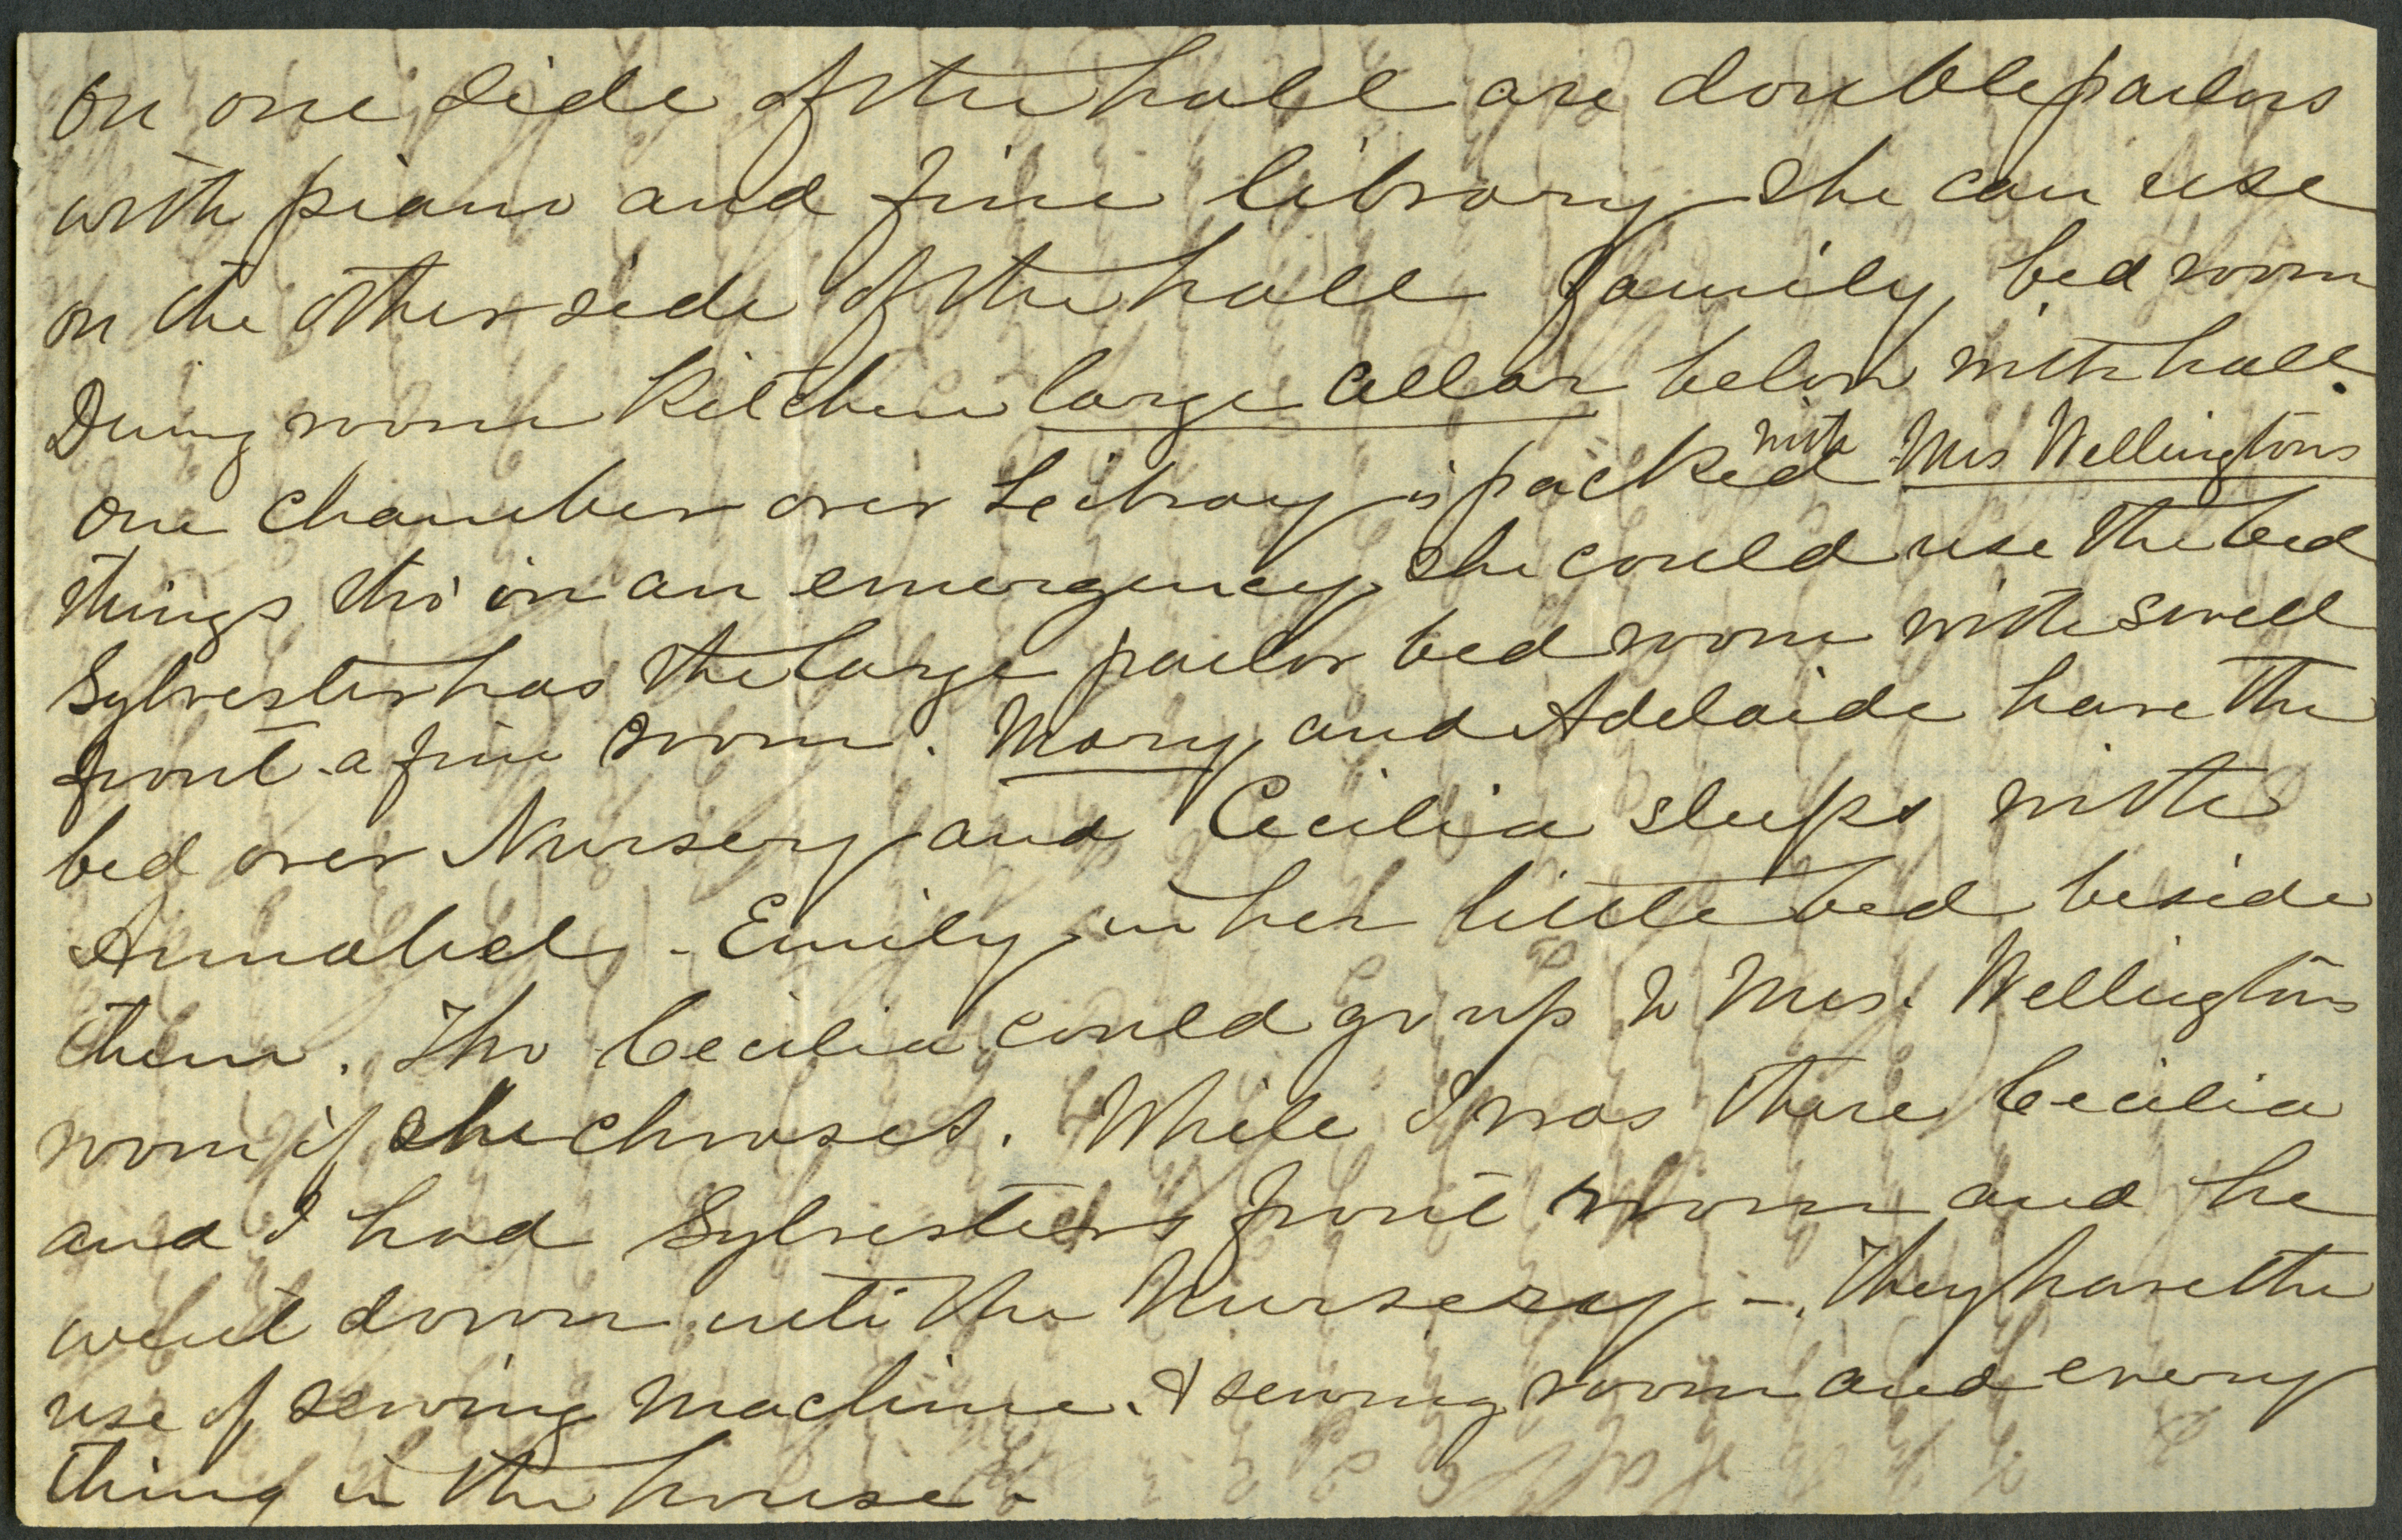 On one side of the hall are double parlors
with piano and fine library she can use
on the other side of the hall family bed room
Dining room Kitchen large cellar below with hall.
one chamber over Leibrary is packed with Mrs Wellingtons
things tho' in an emergency she could use the bed
Sylvester has the large parlor bed room with swell
front a fine room. Mary and Adelaide have the
bed over Nursery and Cecilia sleeps with
Annabel - Emily in her little bed beside
them. Tho Cecilia could go up to Mrs. Wellingtons
room if she chooses. While I was there Cecilia
and I had Sylvesters front room and he
went down into the Nursery - They have the
use of sewing Machine. & sewing room and every
thing in the house -